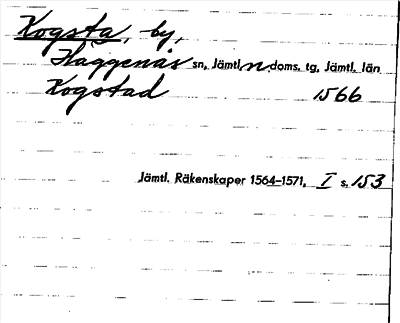 Kogsta, by,
Häggenås sn, Jämtl. n. doms. tg, Jämtl. län
Kogstad 1566
Jämtl. Räkenskaper 1564-1571, I s. 153